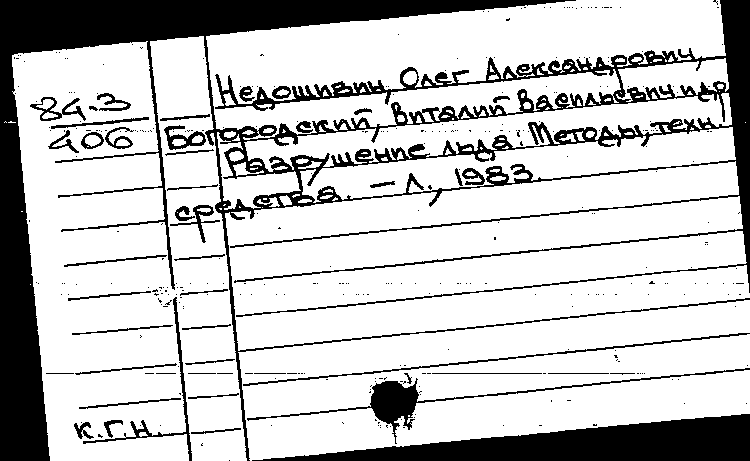 84.3
406
Недошивин, Олег Александрович,
Богородский, Виталий Васильевич и др.
Разрушение льда: Методы, техн.
средства. – Л., 1983.
к.г.н.